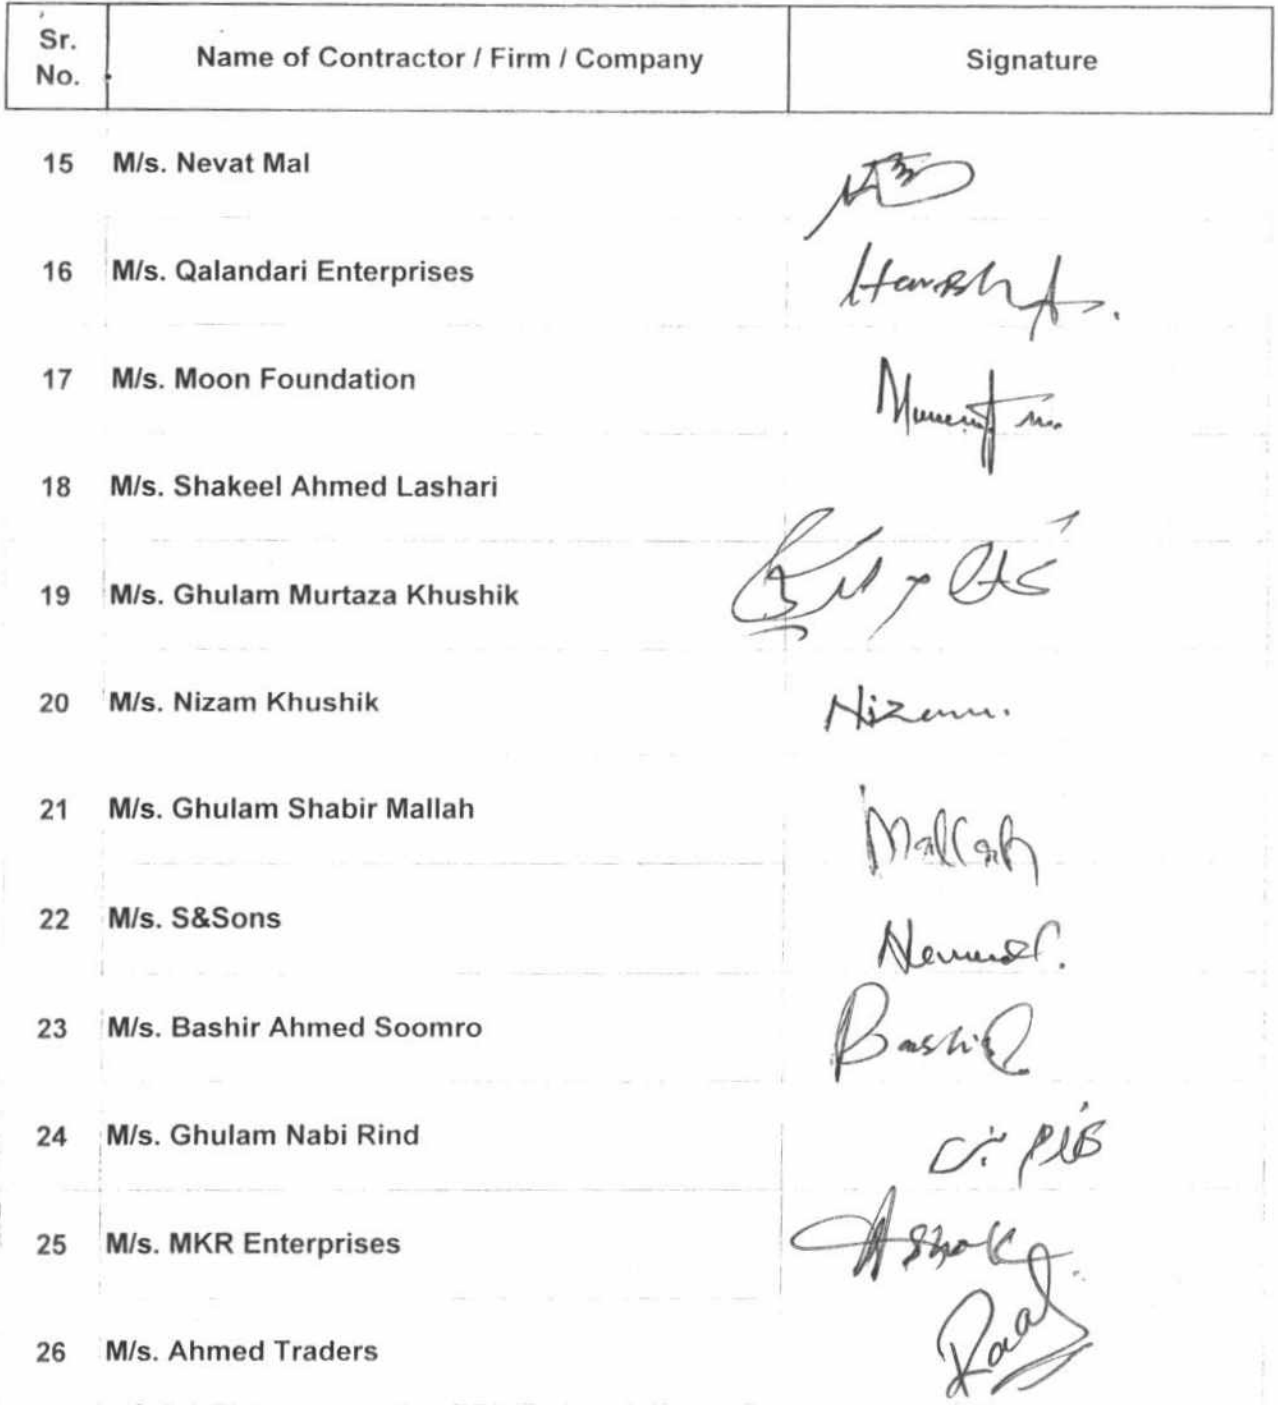 Sr. No.
Name of Contractor / Firm / Company
Signature
15 M/s. Nevat Mal
16 M/s. Qalandari Enterprises
17 M/s. Moon Foundation
18 M/s. Shakeel Ahmed Lashari
19 M/s. Ghulam Murtaza Khushik
20 M/s. Nizam Khushik Nizam.
21 M/s. Ghulam Shabir Mallah Mallah
22 M/s. S&Sons
23 M/s. Bashir Ahmed Soomro Bashir
24 M/s. Ghulam Nabi Rind غلام نبی
25 M/s. MKR Enterprises Ashok
26 M/s. Ahmed Traders